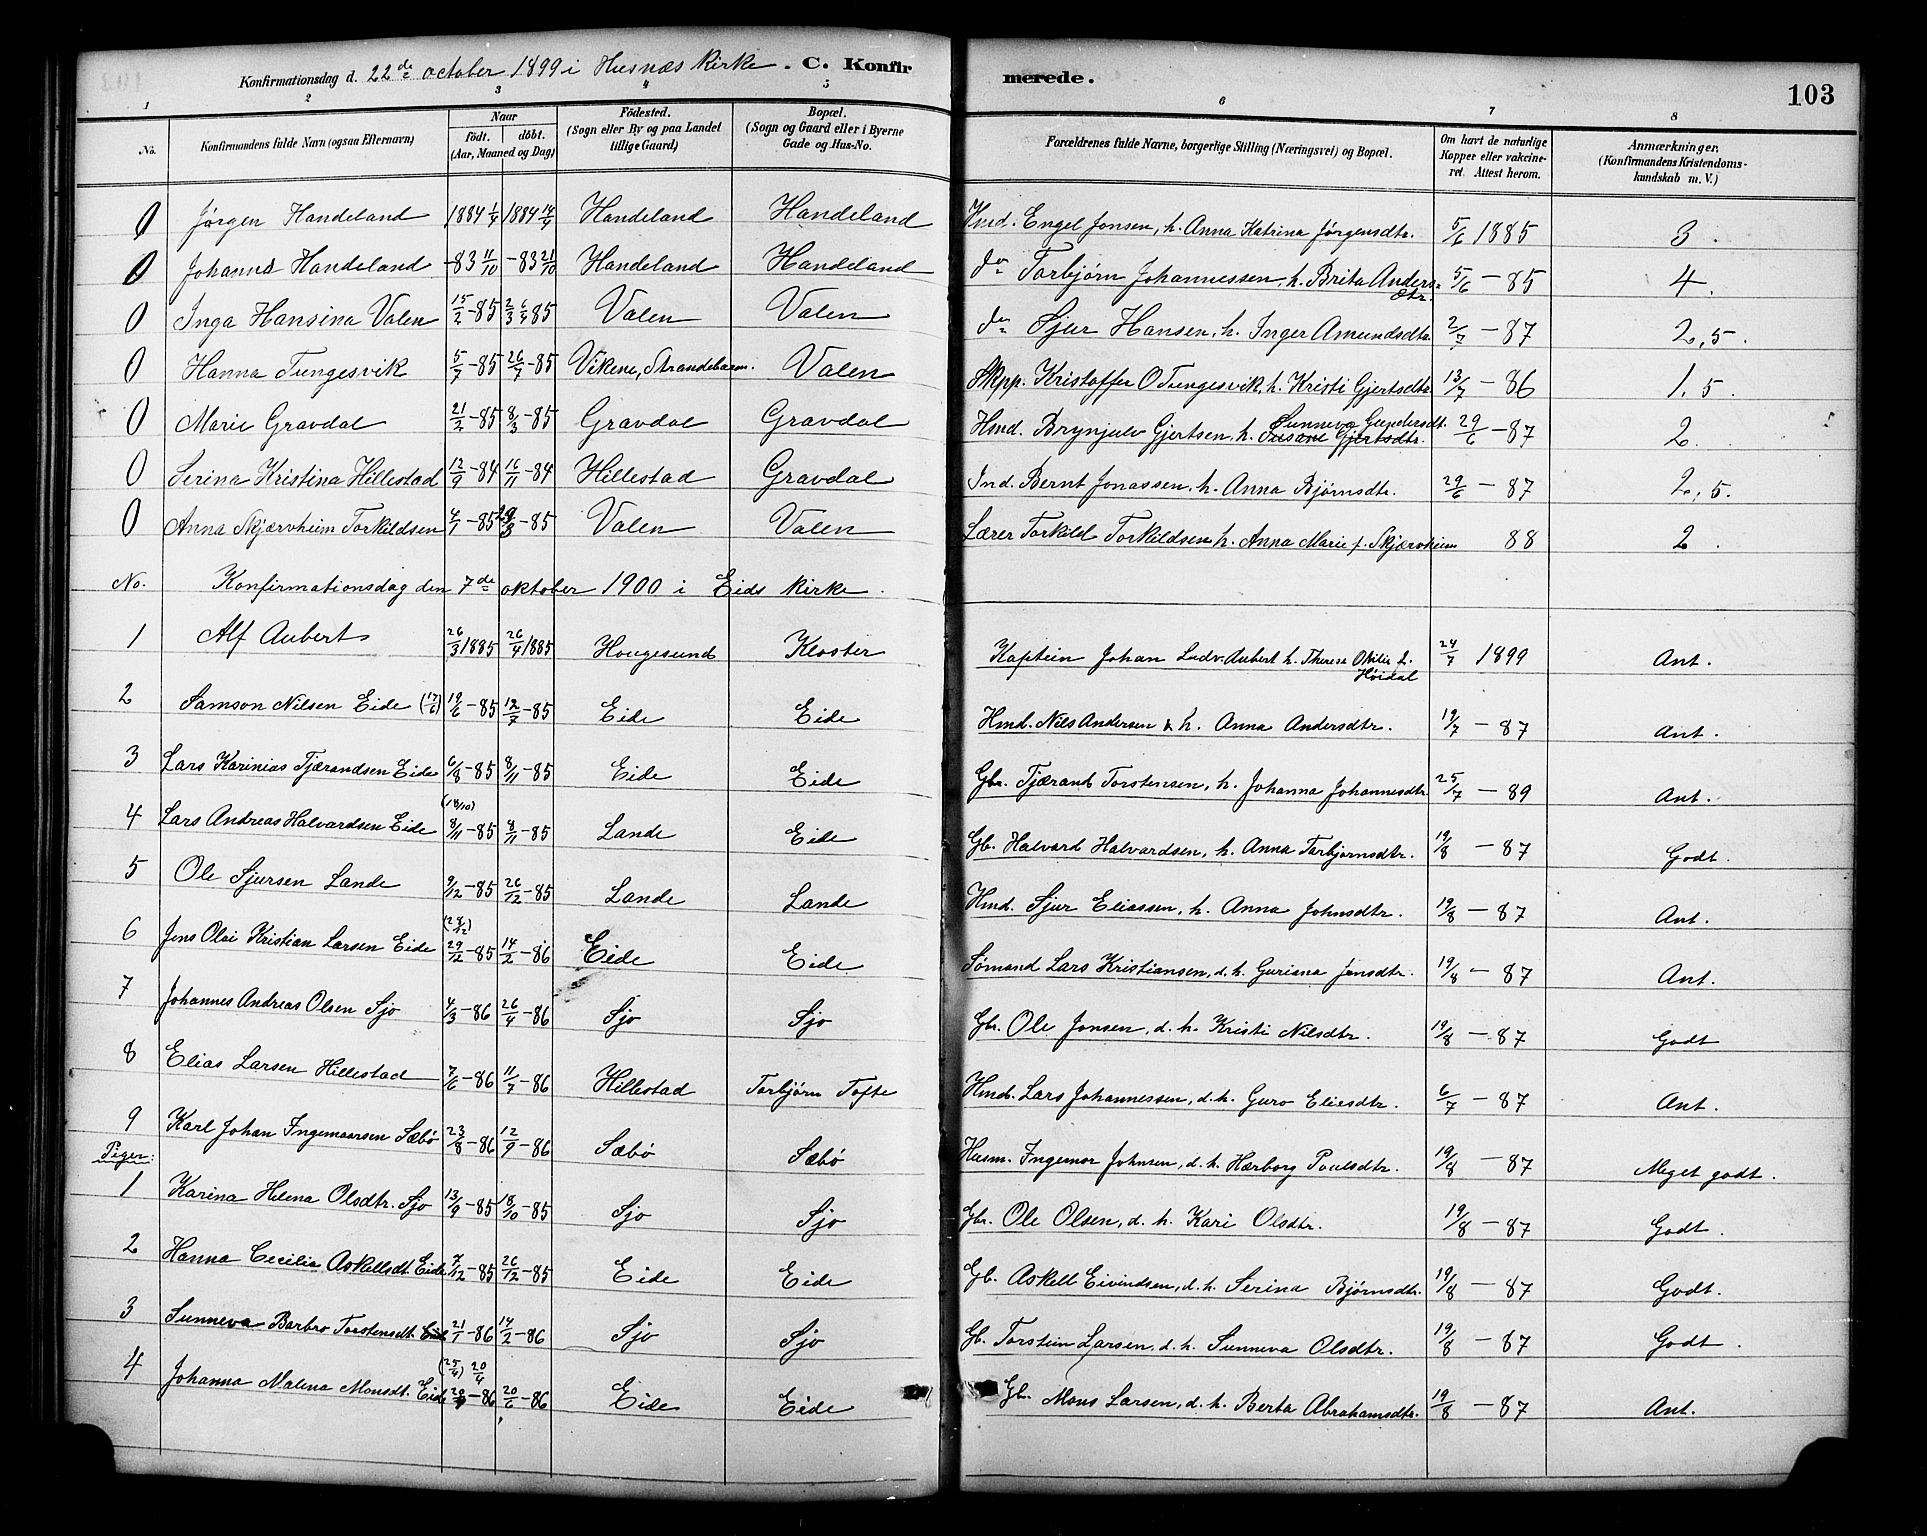 Konfirmationsdag d. 22de october 1899 i Husnæs Kirke. C. Konfirmerede. 103
1 2 3 4 5 6 7 8
No. Konfirmandens fulde Navn (ogsaa Efternavn) Naar født. døbt. (Aar, Maaned og Dag) Födested. (Sogn eller By og paa Landet tillige Gaard) Bopæl. (Sogn og Gaard eller i Byerne Gade og Hus-No. Forældrenes fulde Navne, borgerlige Stilling (Næringsvei) og Bopæl. Om havt de naturlige Kopper eller vakcineret. Attest herom. Anmærkninger. (Konfirmandens Kristendomskundskab m. V.)
0 Jørgen Handeland 1884 1/9 1884 14/9 Handeland Handeland Hmd. Engel Jonsen, h. Anna Katrina Jørgensdtr. 5/6 1885 3.
0 Johannes Handeland -83 11/10 -83 21/10 Handeland Handeland do Torbjørn Johannessen, h. Brita Andersdtr. 5/6 - 85 4.
0 Inga Hansina Valen 15/2 -85 85 Valen Valen do Sjur Hansen, h. Inger Amundsdtr. 2/7 - 87 2,5.
0 Hanna Tungesvik 5/7 -85 26/7 -85 Vikene, Strandebarm. Valen Skpp. Kristoffer O Tungesvik, h. Kristi Gjertsdtr 13/7 - 86 1,5.
0 Marie Gravdal 21/2 -85 8/3 -85 Gravdal Gravdal Hmd. Brynjulv Gjertsen, h. Sunneva Gjertsdtr. 29/6 - 87 2.
0 Serina Kristina Hillestad 12/9 -84 16/11 -84 Hillestad Gravdal Ind. Bernt Jonassen, h. Anna Bjørnsdtr. 29/6 - 87 2,5.
0 Anna Skjærvheim Torkildsen 4/1 -85 29/3 -85 Valen Valen Lærer Torkild Torkildsen h. Anna Marie f. Skjærvheim 88 2.
No. Konfirmationsdag den 7de oktober 1900 i Eids kirke.
1 Alf Aubert 26/3 1885 26/4 1885 Hougesund Kloster Kaptein Johan Ludv. Aubert h. Therese Otilie f. Høidal 24/7 1899 Ant.
2 Samson Nilsen Eide (17/6) 19/6 -85 12/7 -85 Eide Eide Hmd. Nils Andersen & h. Anna Andersdtr. 19/7 - 87 Ant.
3 Lars Karinias Tjærandsen Eide 6/8 -85 8/11 -85 Eide Eide Gbr. Tjærand Torstensen, h. Johanna Johannesdtr 25/7 - 89 Ant.
4 Lars Andreas Halvardsen Eide (18/10) 8/11 -85 8/11 -85 Lande Eide Gb. Halvard Halvardsen, h. Anna Torbjørnsdtr. 19/8 - 87 Godt.
5 Ole Sjursen Lande 9/12 -85 26/12 -85 Lande Lande Hmd. Sjur Eliassen, h. Anna Johnsdtr. 19/8 - 87 Ant.
6 Jens Olai Kristian Larsen Eide 29/12 -85 14/2 -86 Eide Eide Sømand Lars Kristiansen, d. h. Guriana Jensdtr. 19/8 - 87 Ant.
7 Johannes Andreas Olsen Sjo 4/3 -86 26/4 -86 Sjo Sjo Gbr. Ole Jonsen, d. h. Kristi Nilsdtr. 19/8 - 87 Godt
8 Elias Larsen Hillestad 7/6 -86 11/7 -86 Hillestad Torbjørn Tofte Hmd. Lars Johannessen, d. h. Guro Eliesdtr. 6/7 - 87 Ant.
9 Karl Johan Ingemaarsen Sæbø 23/8 -86 12/9 -86 Sæbø Sæbø Husm. Ingemor Johnsen, d. h. Hærborg Poulsdtr. 19/8 - 87 Meget godt.
Piger:
1 Karina Helena Olsdtr. Sjo 13/9 -85 18/10 -85 Sjo Sjo Gbr. Ole Olsen, d. h. Kari Olsdtr. 19/8 - 87 Godt.
2 Hanna Cecilia Askellsdt. Eide 7/12 -85 26/12 -85 Eide Eide Gb. Askell Eivindsen, d. h. Serina Bjørnsdtr. 19/8 - 87 Godt.
3 Sunneva Barbro Torstensdt. 21/1 -86 14/2 -86 Sjo Sjo Gb. Torstein Larsen, d. h. Sunneva Olsdtr. 19/8 - 87 Godt.
4 Johanna Malena Monsdt. Eide (25/4) 20/4 -86 20/6 -86 Eide Eide Gbr. Mons Larsen, d. h. Berta Abrahamsdtr. 19/8 - 87 Ant.